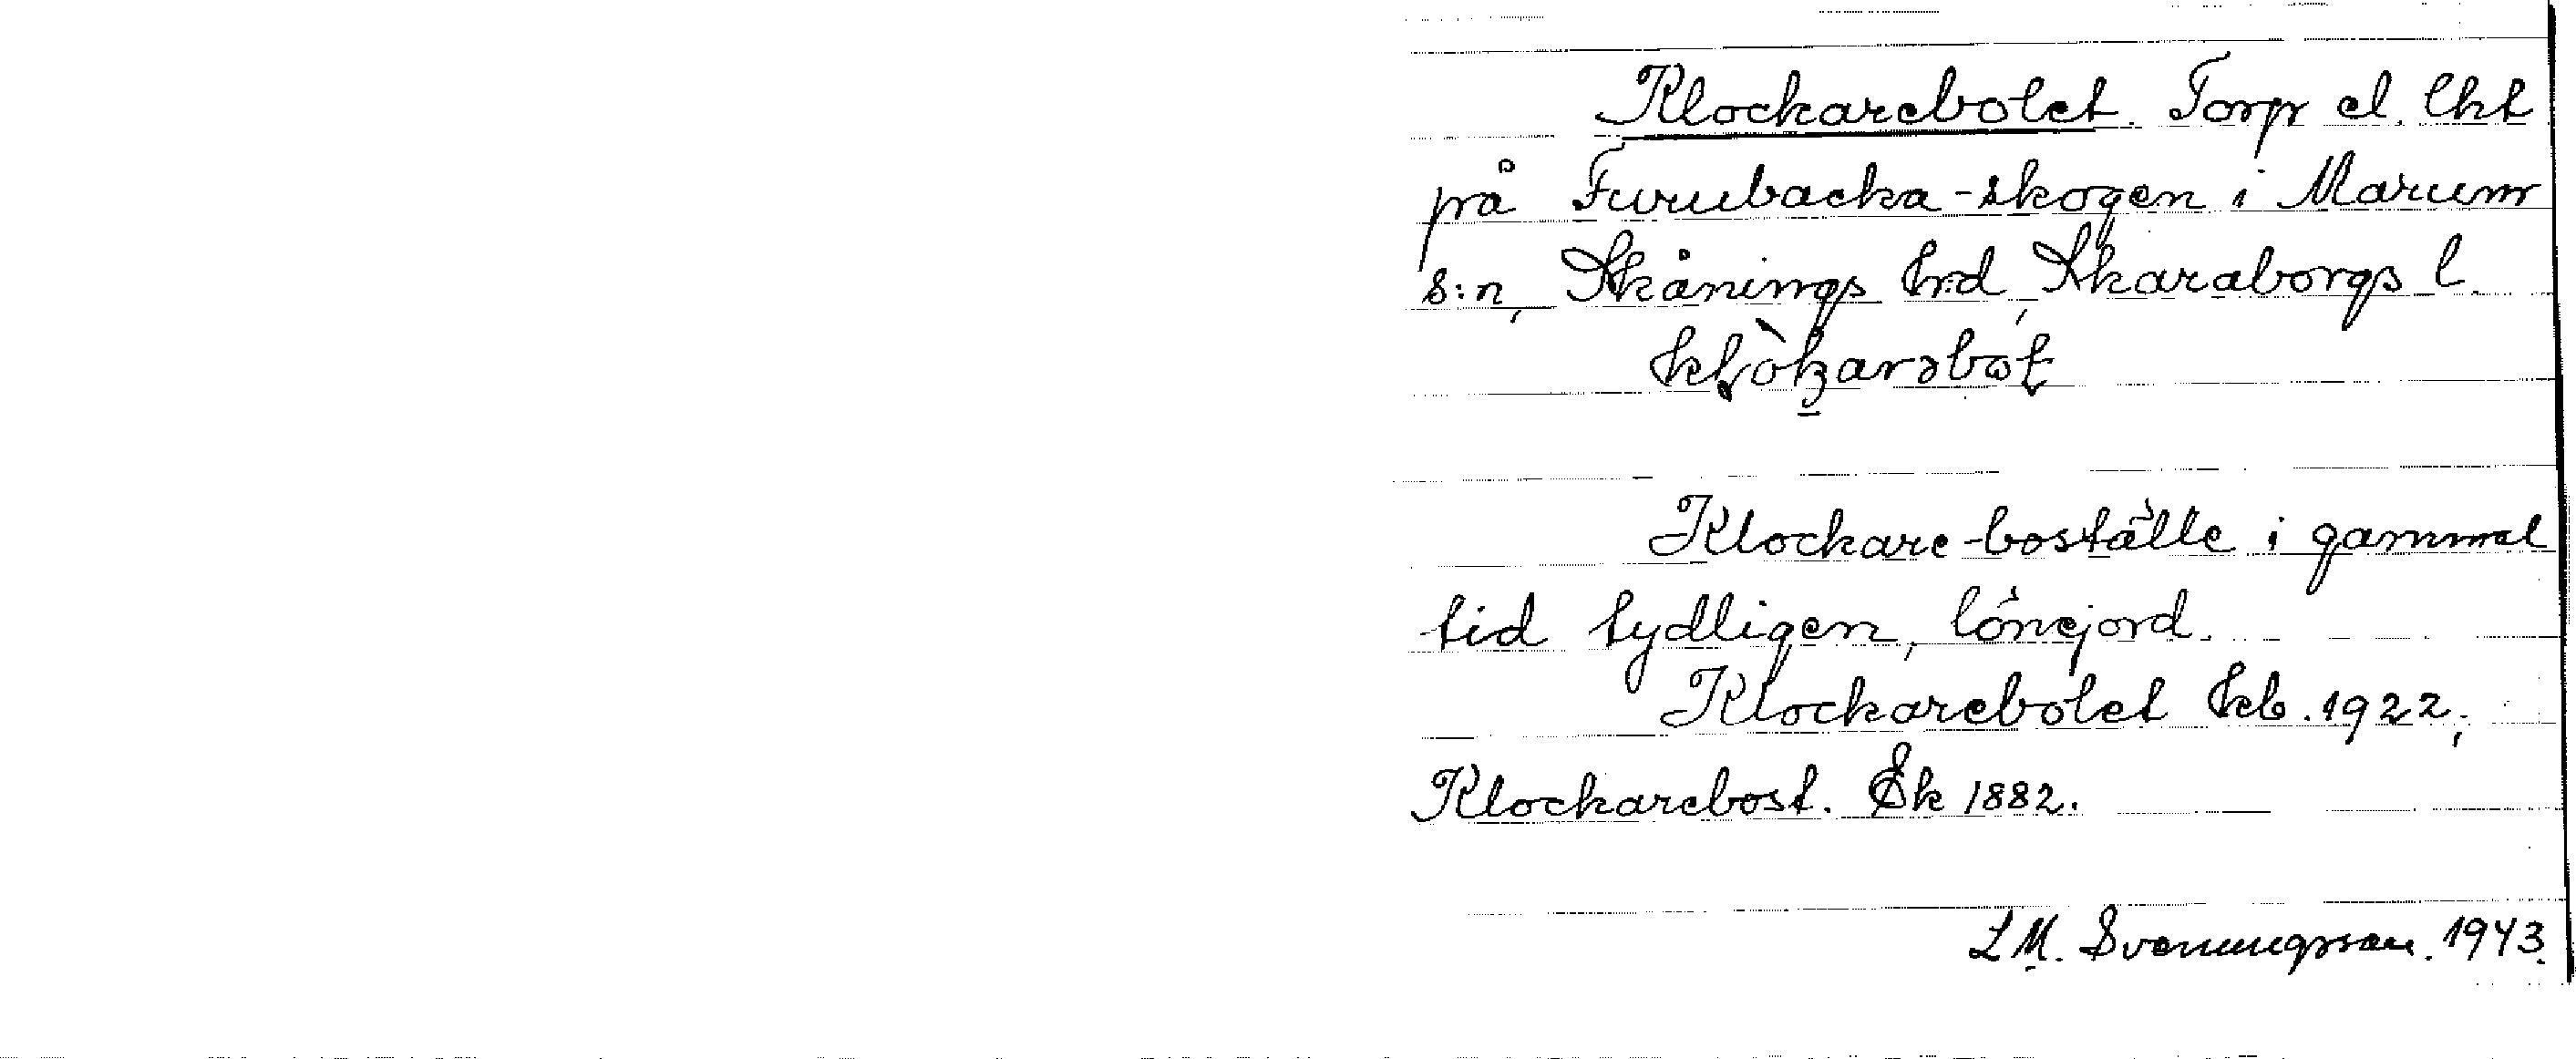 Klockarebolet. Torp el. lht
på Furubacka-skogen i Marum
s:n, Skånings hrd, Skaraborgs l.
Klockare-boställe i gammal
tid tydligen, lönejord.
Klockarebolet kb. 1922,
Klockarebost. Ek 1882.
L M. Svenungsson. 1943.